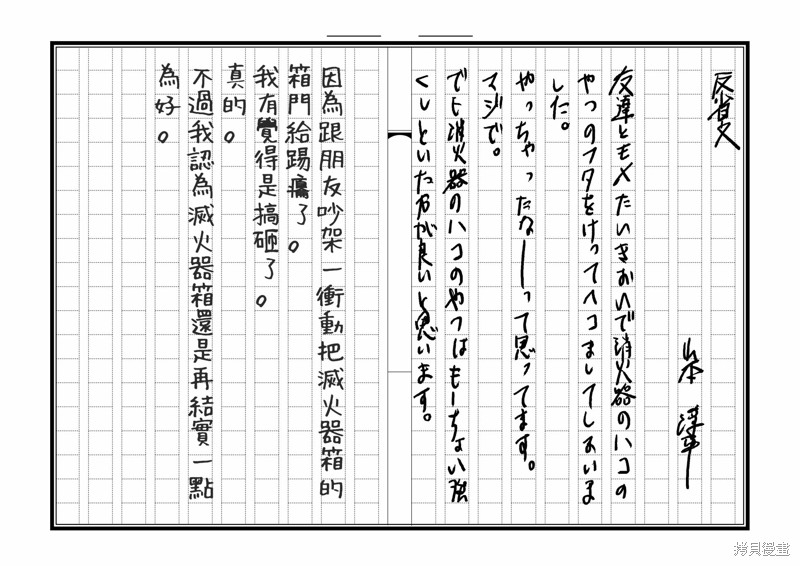 反省文
山本 淳平
友達とモメたいきおいで消火器のハコの
やつのフタをけってヘコましてしまいま
した。
やっちゃったなーって思ってます。
マジで。
でも消火器のハコのやつはもーちょい強
くしといた方が良いと思います。
因為跟朋友吵架一衝動把滅火器箱的
箱門給踢癟了。
我有覺得是搞砸了。
真的。
不過我認為滅火器箱還是再結實一點
為好。
拷貝漫畫